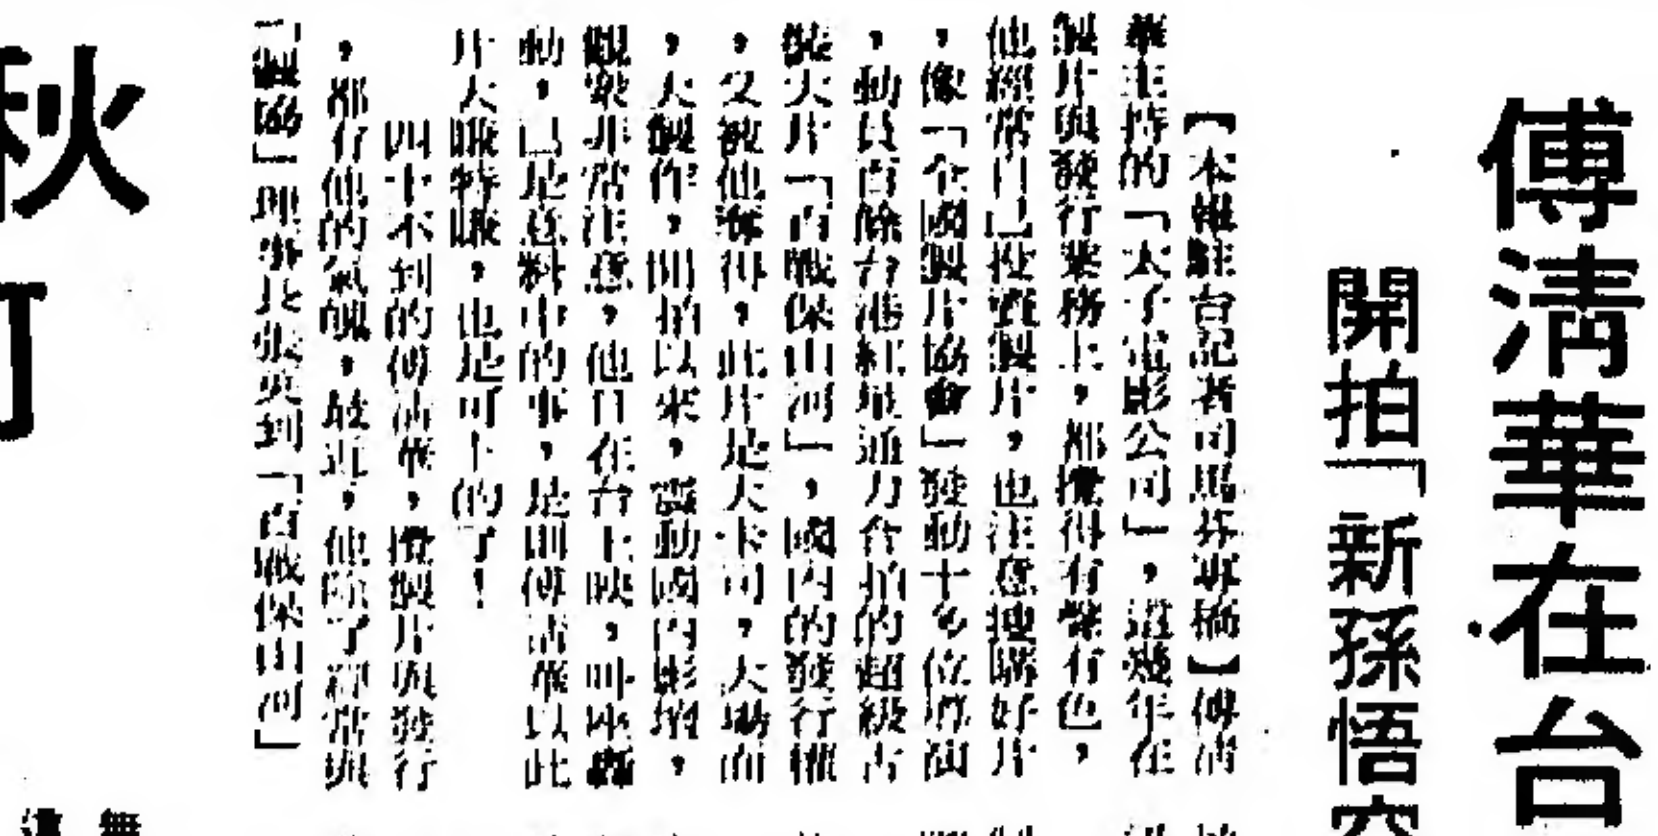 傅清華在台
開拍「新孫悟空
【本報駐台記者司馬芬專稿】傅清
華主持的「太子電影公司」，這幾年在
製片與發行業務上，都攪得有聲有色，
他經常自己投資製片，也注意搜購好片
，像「全國製片協會」發動十多位導演
，動員百餘台港紅星通力合拍的超級古
裝大片「百戰保山河」，國內的發行權
，又被他奪得，此片是大卡司，大場面
，大製作，開拍以來，震動國內影壇，
觀衆非常注意，他日在台上映，叫座轟
動，已是意料中的事，是則傅清華以此
片大暾特暾，也是可上的了！
四十不到的傅清華，攪製片與發行
，都有他的氣魄，最近，他除了經常與
「製協」理事長張英到「百戰保山河」
秋
無